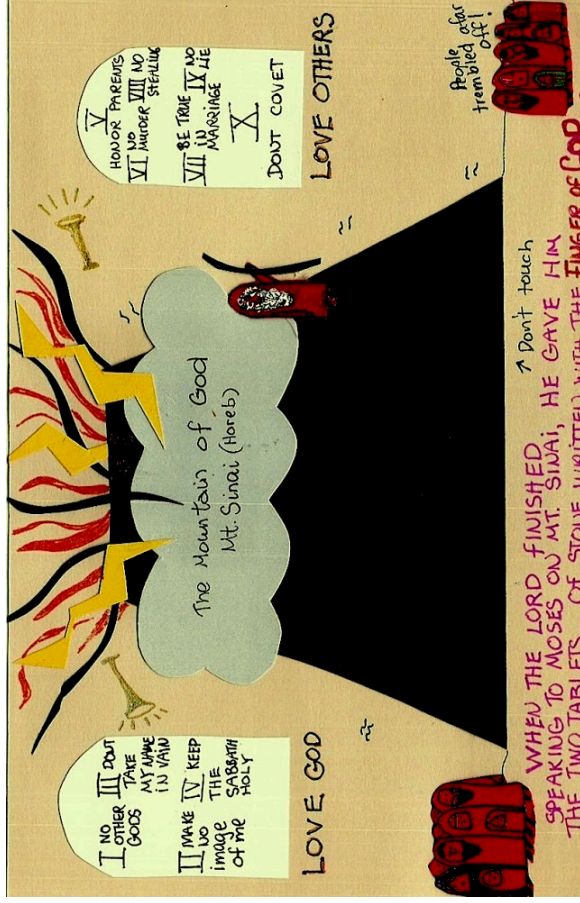 I NO
OTHER
GODS
III DONT
TAKE
MY NAME
IN VAIN
II MAKE
NO
image
of me
IV KEEP
THE
SABBATH
HOLY
LOVE GOD
The Mountain of God
Mt. Sinai (Horeb)
V
HONOR PARENTS
VI NO
MURDER
VIII NO
STEALING
VII BE TRUE
IN
MARRIAGE
IX NO
LIE
X
DONT COVET
LOVE OTHERS
People afar
trembled off!
↑ Don't touch
WHEN THE LORD FINISHED
SPEAKING TO MOSES ON MT. SINAI, HE GAVE HIM
THE TWO TABLETS OF STONE WRITTEN WITH THE FINGER OF GOD